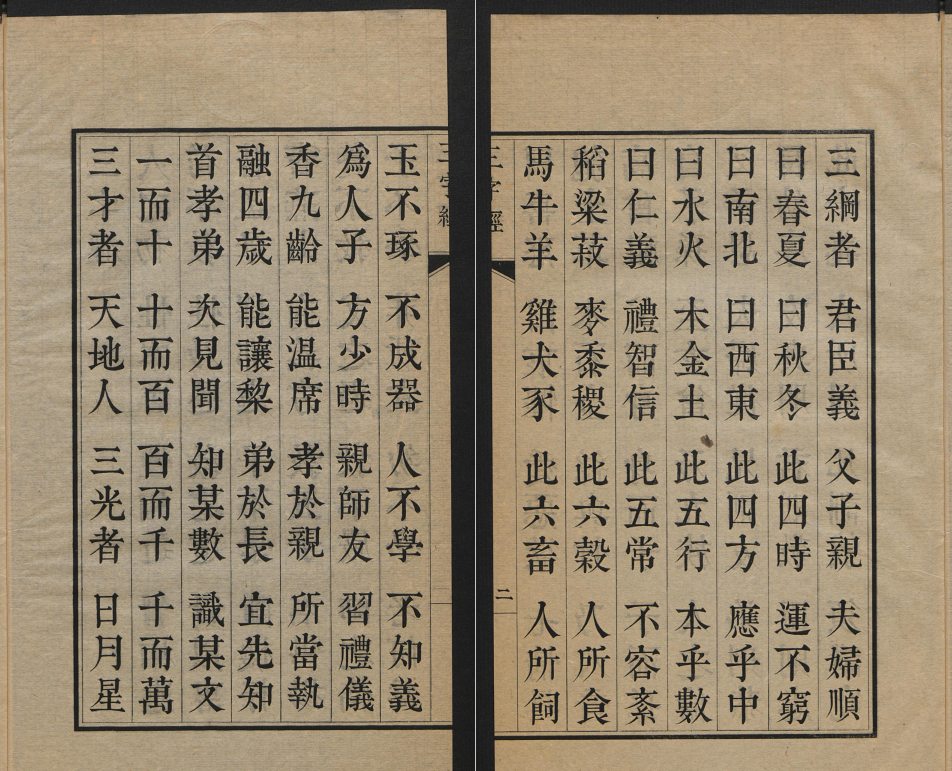 三綱者 君臣義 父子親 夫婦順
曰春夏 曰秋冬 此四時 運不窮
曰南北 曰西東 此四方 應乎中
曰水火 木金土 此五行 本乎數
曰仁義 禮智信 此五常 不容紊
稻梁菽 麥黍稷 此六穀 人所食
馬牛羊 雞犬豕 此六畜 人所飼
三字經 二
三字經
玉不琢 不成器 人不學 不知義
爲人子 方少時 親師友 習禮儀
香九齡 能温席 孝於親 所當執
融四歲 能讓棃 弟於長 宜先知
首孝弟 次見聞 知某數 識某文
一而十 十而百 百而千 千而萬
三才者 天地人 三光者 日月星